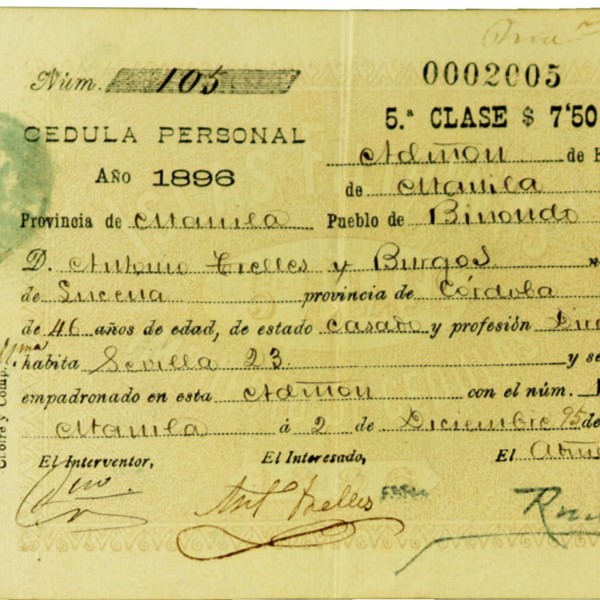 Núm. 105
0002005
CEDULA PERSONAL
5.ª CLASE $ 7'50
Año 1896
Admon de H
de Manila
Provincia de Manila Pueblo de Binondo
D. Antonio Trelles y Burgos
de Lucena provincia de Córdoba
de 46 años de edad, de estado casado y profesión
habita Sevilla 23 y se
empadronado en esta Admon con el núm.
Manila á 2 de Diciembre 95 de
El Interventor, El Interesado, El
Ant Trelles
y Comp.